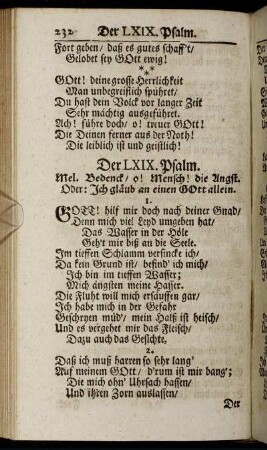 232 Der LXIX. Psalm.
Fort geben/ daß es gutes schaff't/
Gelobet sey GOtt ewig!
***
GOtt! deine grosse Herrlichkeit
Man unbegreifflich spühret/
Du hast dein Volck vor langer Zeit
Sehr mächtig ausgeführet.
Ach! führe doch/ o! treuer GOtt!
Die Deinen ferner aus der Noth!
Die leiblich ist und geistlich!
Der LXIX. Psalm.
Mel. Bedenck/ o! Mensch! die Angst.
Oder: Jch gläub an einen GOtt allein.
1.
GOTT! hilf mir doch nach deiner Gnad/
Denn mich viel Leyd umgeben hat/
Das Wasser in der Höle
Geh't mir biß an die Seele.
Jm tieffen Schlamm versincke ich/
Da kein Grund ist/ befind' ich mich/
Jch bin im tieffen Wasser;
Mich ängsten meine Hasser.
Die Fluht will mich ersäuffen gar/
Jch habe mich in der Gefahr
Geschryen müd'/ mein Halß ist heisch/
Und es vergehet mir das Fleisch/
Dazu auch das Gesichte.
2.
Daß ich muß harren so sehr lang'
Auf meinem GOtt/ d'rum ist mir bang';
Die mich ohn' Uhrsach hassen/
Und ihren Zorn auslassen/
Der